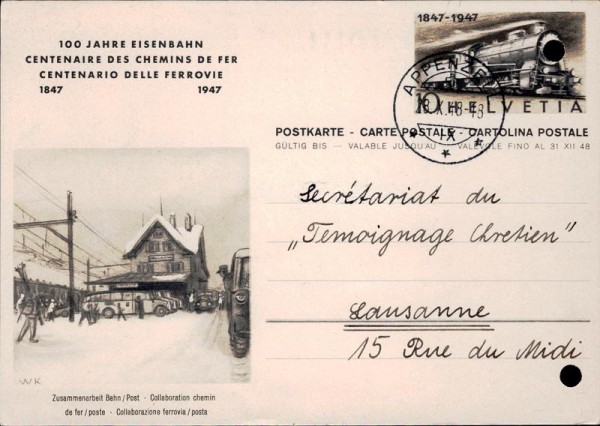 100 JAHRE EISENBAHN
CENTENAIRE DES CHEMINS DE FER
CENTENARIO DELLE FERROVIE
1847 1947
1847-1947
10 HELVETIA
APPENZELL
X.48-18
IX
POSTKARTE - CARTE POSTALE - CARTOLINA POSTALE
GÜLTIG BIS — VALABLE JUSQU'AU — VALEVOLE FINO AL 31 XII 48
Secrétariat du
„Temoignage Chretien"
Lausanne
15 Rue du Midi
WK
Zusammenarbeit Bahn/Post · Collaboration chemin
de fer/poste · Collaborazione ferrovia/posta